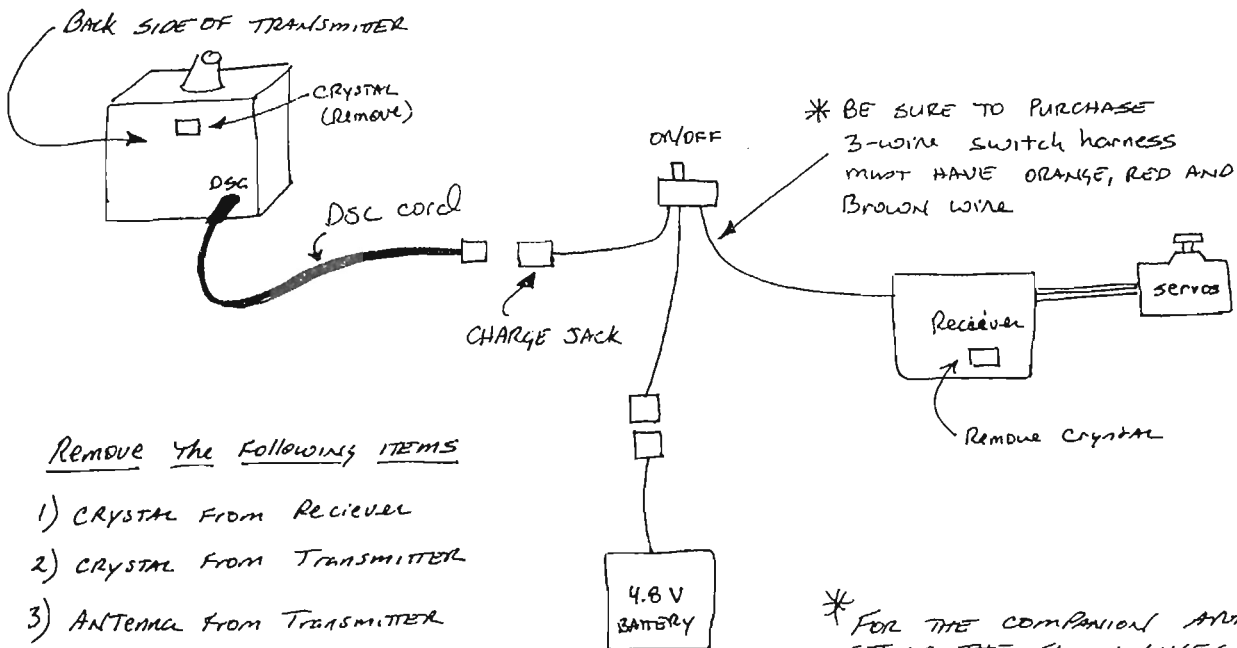 BACK SIDE OF TRANSMITTER
CRYSTAL
(Remove)
DSC
DSC cord
CHARGE JACK
ON/OFF
* BE SURE TO PURCHASE
3-wire switch harness
must HAVE ORANGE, RED AND
Brown wire
Reciever
servos
Remove Crystal
4.8 V
BATTERY
Remove the Following ITEMS
1) CRYSTAL From Reciever
2) CRYSTAL From Transmitter
3) ANTENNA from Transmitter
* FOR THE COMPANION